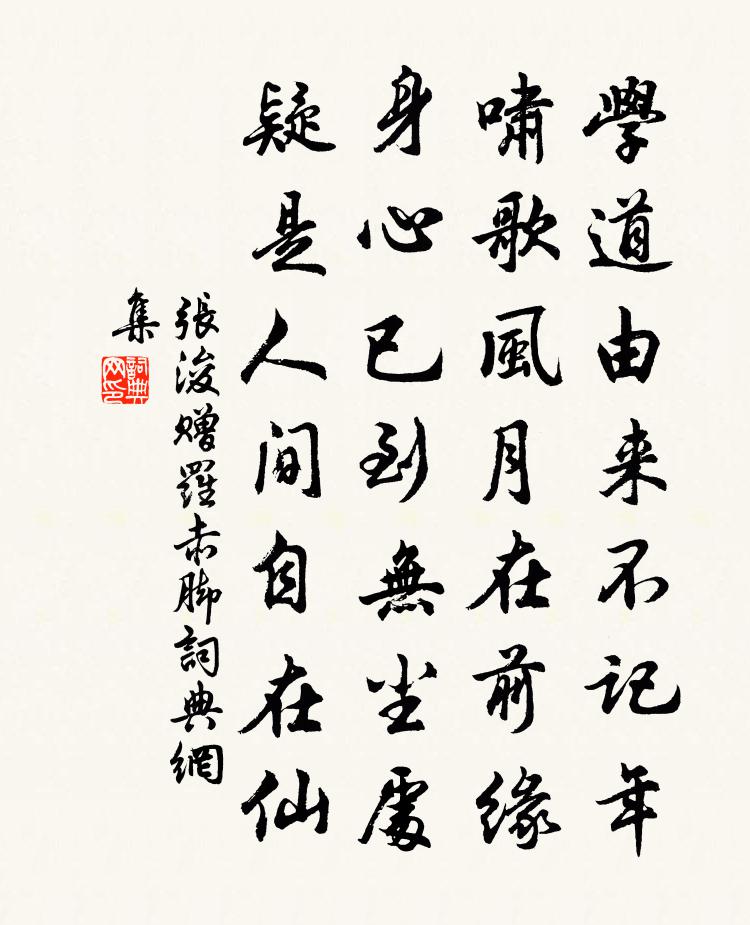 學道由来不记年
嘯歌風月在前緣
身心已到無尘處
疑是人间自在仙
張浚赠羅赤脚詞典網
集
詞典
网印